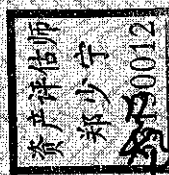 资产评估师
郑少宇
0012